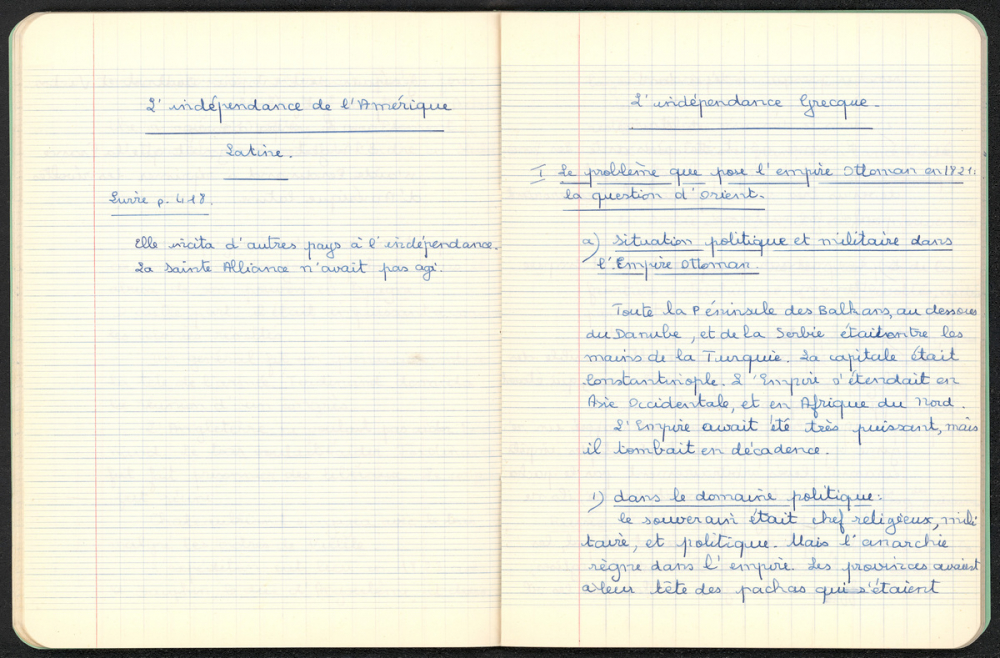 L'indépendance de l'Amérique
Latine.
Livre p. 418.
Elle incita d'autres pays à l'indépendance.
La Sainte Alliance n'avait pas agi.
L'indépendance Grecque.
I Le problème que pose l'empire Ottoman en 1821:
la question d'Orient.
a) situation politique et militaire dans
l'Empire Ottoman.
Toute la Péninsule des Balkans, au dessous
du Danube, et de la Serbie était entre les
mains de la Turquie. La capitale était
Constantinople. L'Empire s'étendait en
Asie Occidentale, et en Afrique du Nord.
L'Empire avait été très puissant, mais
il tombait en décadence.
1) dans le domaine politique:
le souverain était chef religieux, mili
taire, et politique. Mais l'anarchie
règne dans l'empire. Les provinces avaient
a leur tête des pachas qui s'étaient